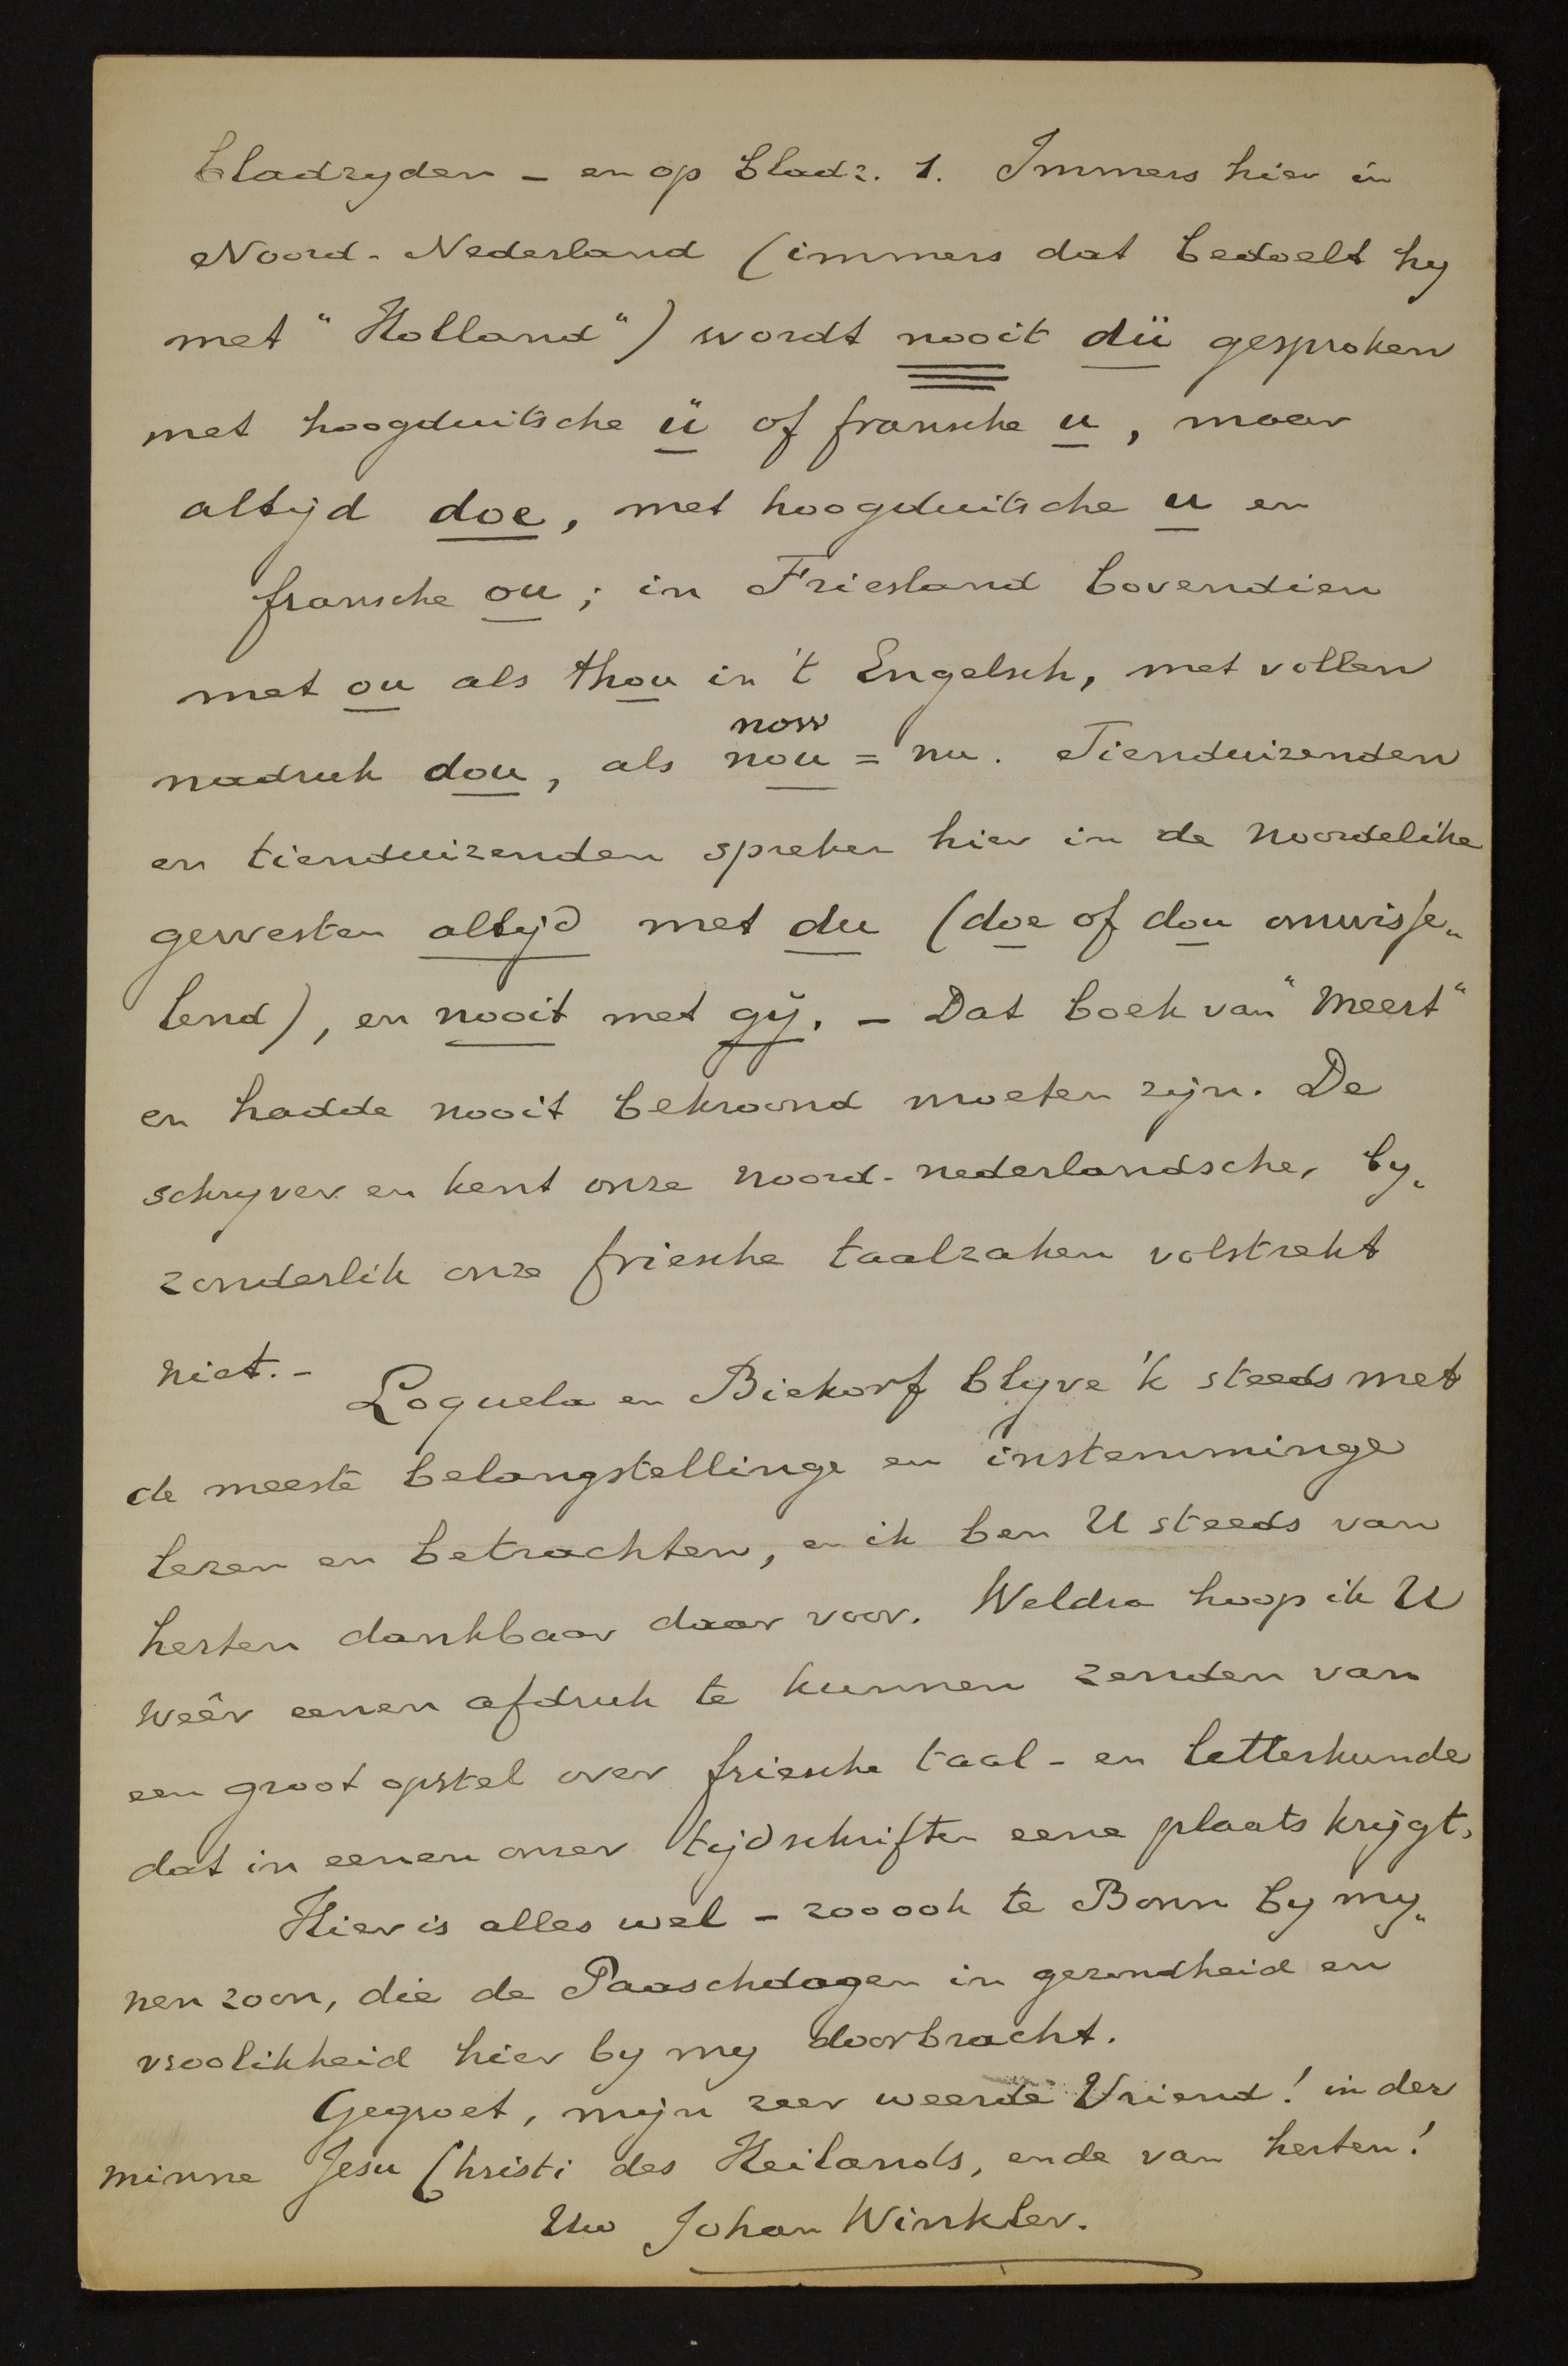 bladzyden – en op bladz. 1. Immers hier in
Noord-Nederland (immers dat bedoelt hy
met "Holland") wordt nooit dü gesproken
met hoogduitsche ü of fransche u, maar
altijd doe, met hoogduitsche u en
fransche ou; in Friesland bovendien
met ou als thou in 't Engelsch, met vollen
now
nadruk dou, als nou = nu. Tienduizenden
en tienduizenden spreken hier in de noordelike
gewesten altijd met du (doe of dou omwisse„
lend), en nooit met gij. – Dat boek van "Meert"
en hadde nooit bekroond moeten zijn. De
schryver en kent onze noord-nederlandsche, by„
zonderlik onze friesche taalzaken volstrekt
niet. –
Loquela en Biekorf blyve 'k steeds met
de meeste belangstellinge en instemminge
lezen en betrachten, en ik ben U steeds van
herten dankbaar daar voor. Weldra hoop ik U
weêr eenen afdruk te kunnen zenden van
een groot opstel over friesche taal- en letterkunde
dat in eenen onzer tijdschriften eene plaats krijgt.
Hier is alles wel – zoo ook te Bonn by my„
nen zoon, die de Paaschdagen in gezondheid en
vroolikheid hier by my doorbracht.
Gegroet, mijn zeer weerde Vriend! in der
minne Jesu Christi des Heilands, ende van herten!
Uw Johan Winkler.